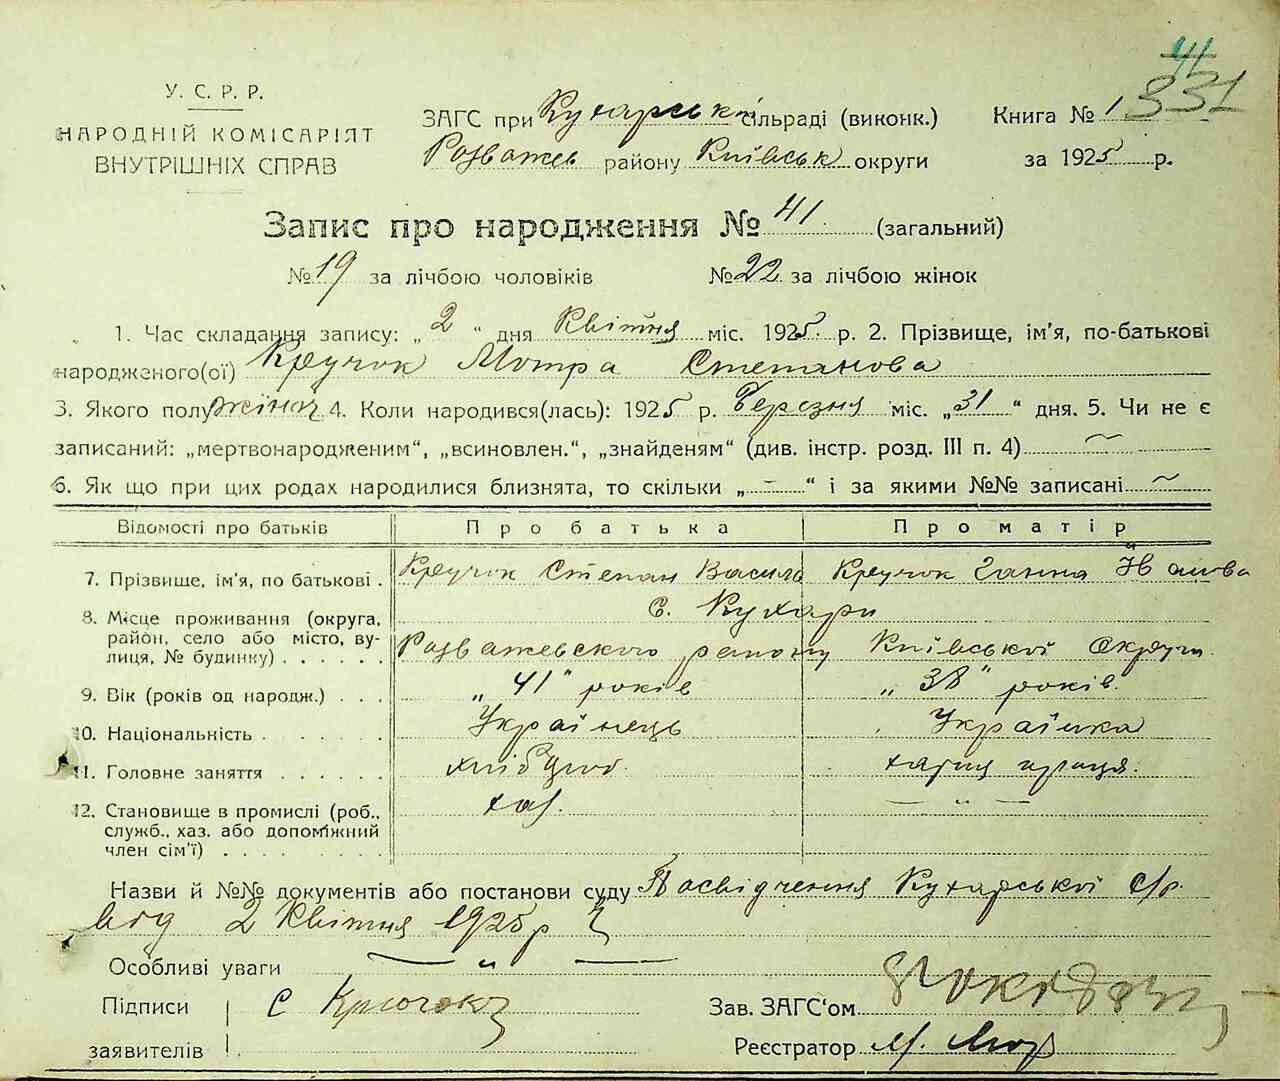 41
331
У. С. Р. Р.
НАРОДНІЙ КОМІСАРІЯТ
ВНУТРІШНІХ СПРАВ
ЗАГС при Кухарській сільраді (виконк.)
Розважев району Київськ округи
Книга № 1
за 1925 р.
Запис про народження № 41 (загальний)
№ 19 за лічбою чоловіків № 22 за лічбою жінок
1. Час складання запису: „2“ дня Квітня міс. 1925 р. 2. Прізвище, ім'я, по-батькові
народженого(ої) Кручок Мотра Степанова
3. Якого полу жіноч 4. Коли народився(лась): 1925 р. Березня міс. „31“ дня. 5. Чи не є
записаний: „мертвонародженим“, „всиновлен.“, „знайденям“ (див. інстр. розд. III п. 4) ~
6. Як що при цих родах народилися близнята, то скільки „-“ і за якими №№ записані ~
Відомості про батьків Про батька Про матір
7. Прізвище, ім'я, по батькові . Кручок Степан Василь Кручок Ганна
8. Місце проживання (округа, с. Кухари
район, село або місто, ву-
лиця, № будинку) . . . . . . Розважевского району Київської Округи.
9. Вік (років од народж.) . . . „41“ років „38“ років.
10. Національність . . . . . . Українець Українка
11. Головне заняття . . . . . . хлібороб. хатня праця.
12. Становище в промислі (роб., хаз. — „ —
служб., хаз. або допоміжний
член сім'ї) . . . . . . . .
Назви й №№ документів або постанови суду Посвідчення Кухарської с/р.
від 2 Квітня 1925 р
Особливі уваги — „ —
Підписи С Крючок
заявителів
Зав. ЗАГС‘ом
Реєстратор М.